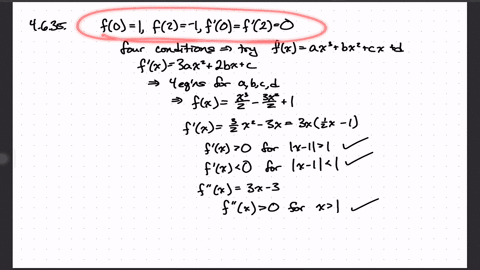 4.635. f(0)=1, f(2)=-1, f'(0)=f'(2)=0
four conditions ⇒ try f(x)=ax³+bx²+cx+d
f'(x)=3ax²+2bx+c
⇒ 4 eqns for a,b,c,d
⇒ f(x)= x³/2 - 3x²/2 +1
f'(x)= 3/2 x²-3x = 3x(½x-1)
f'(x)>0 for |x-1|>1 ✓
f'(x)<0 for |x-1|<1 ✓
f"(x)=3x-3
f"(x)>0 for x>1 ✓